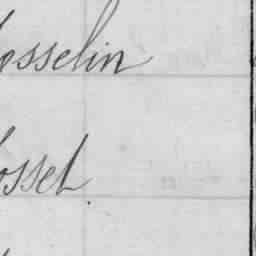 osselin
osset.